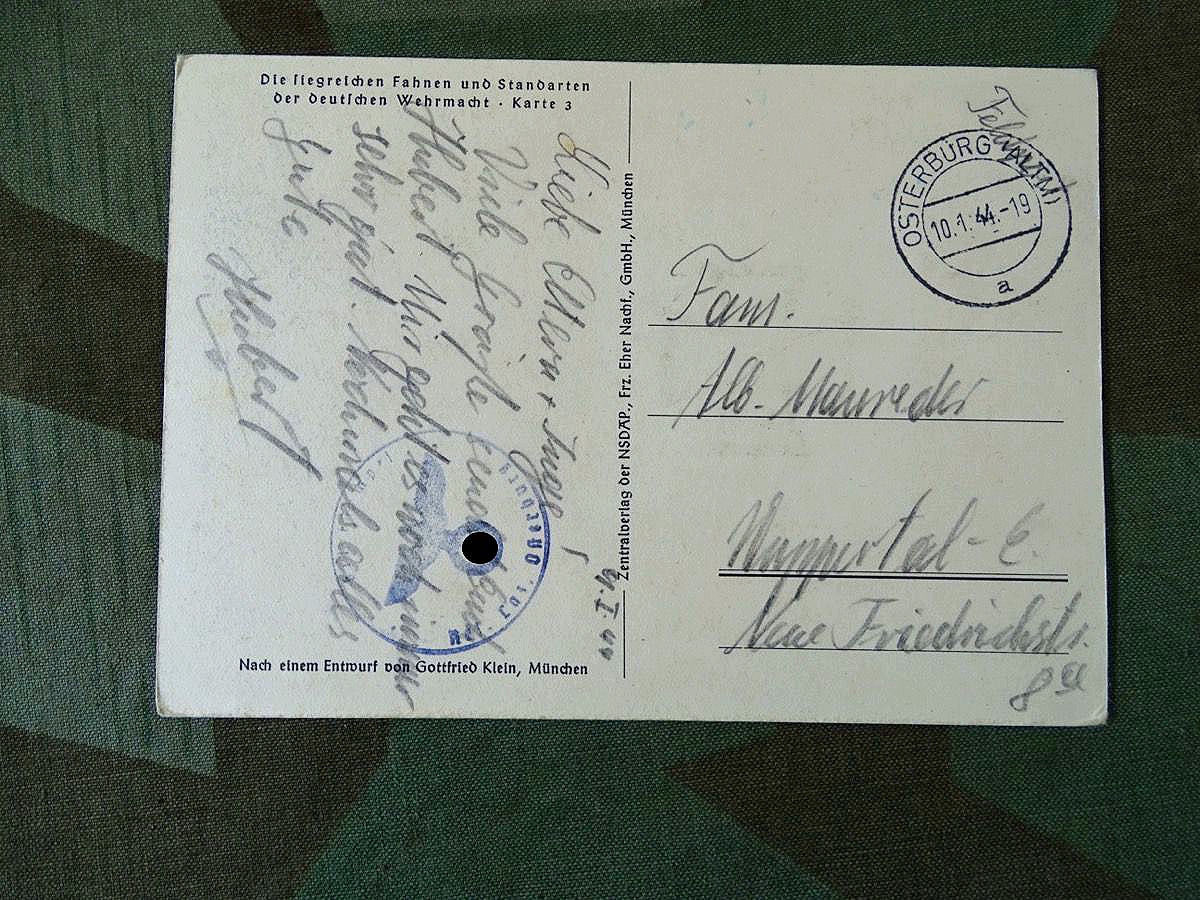 Die siegreichen Fahnen und Standarten
der deutschen Wehrmacht · Karte 3
Liebe Eltern + Inge
Viele Grüße sendet Euch
Hubert. Mir geht es noch immer
sehr gut. Nochmals alles
Gute
Hubert
9. I 44
Nach einem Entwurf von Gottfried Klein, München
Zentralverlag der NSDAP., Frz. Eher Nachf., GmbH., München
Feldpost
OSTERBURG (ALTM)
10.1.44.-19
a
Fam.
Alb.
Wuppertal-E.
Neue Friedrichstr.
8